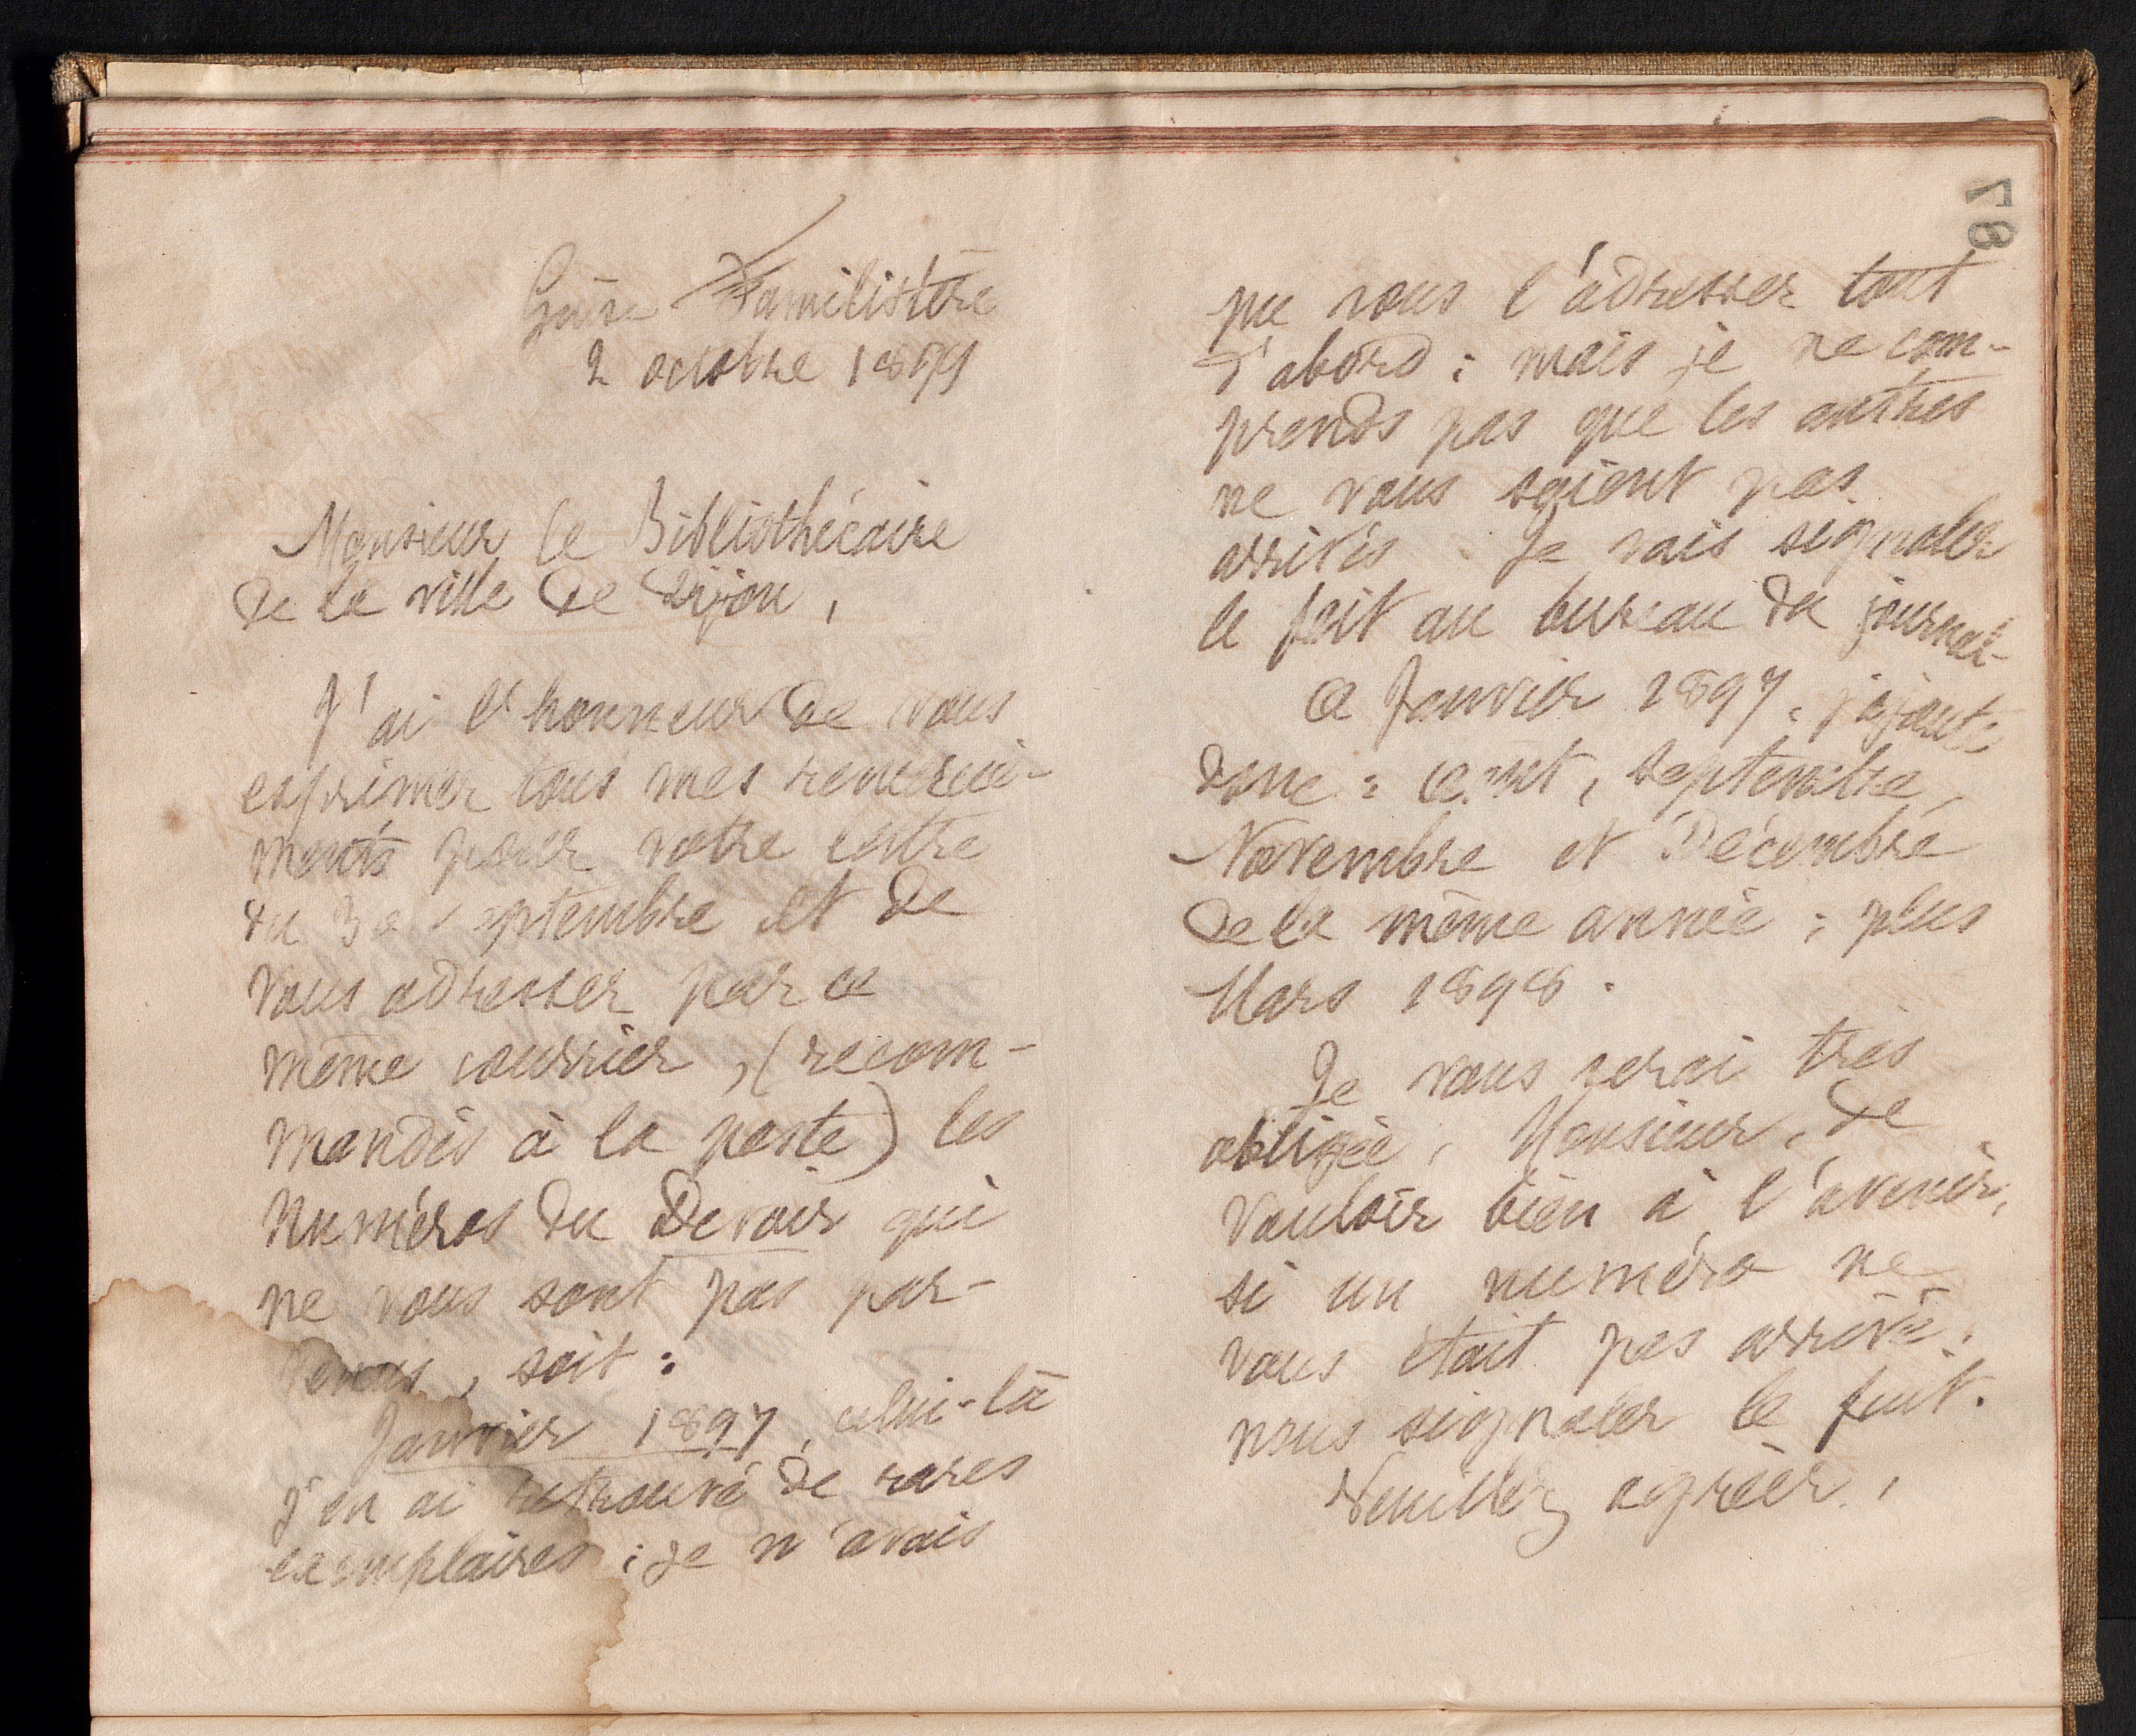 Guise Familistère
2 octobre 1899
Monsieur le Bibliothécaire
de la ville de Dijon,
J'ai l'honneur de vous
exprimer tous mes remercie-
ments pour votre lettre
du 30 septembre et de
vous adresser par ce
même courrier, (recom-
mandés à la poste) les
numéros du Devoir qui
ne vous sont pas par-
venus, soit :
Janvier 1897, celui-là
j'en ai retrouvé de rares
exemplaires ; je n'avais
78
pu vous l'adresser tout
d'abord ; mais je ne com-
prends pas que les autres
ne vous soient pas
arrivés. Je vais signaler
le fait au bureau du journal
A Janvier 1897 : j'ajoute
donc : août, septembre,
Novembre et Décembre
de la même année ; plus
Mars 1898.
Je vous serai très
obligée, Monsieur, de
vouloir bien à l'avenir,
si un numéro ne
vous était pas arrivé,
nous signaler le fait.
Veuillez agréer,